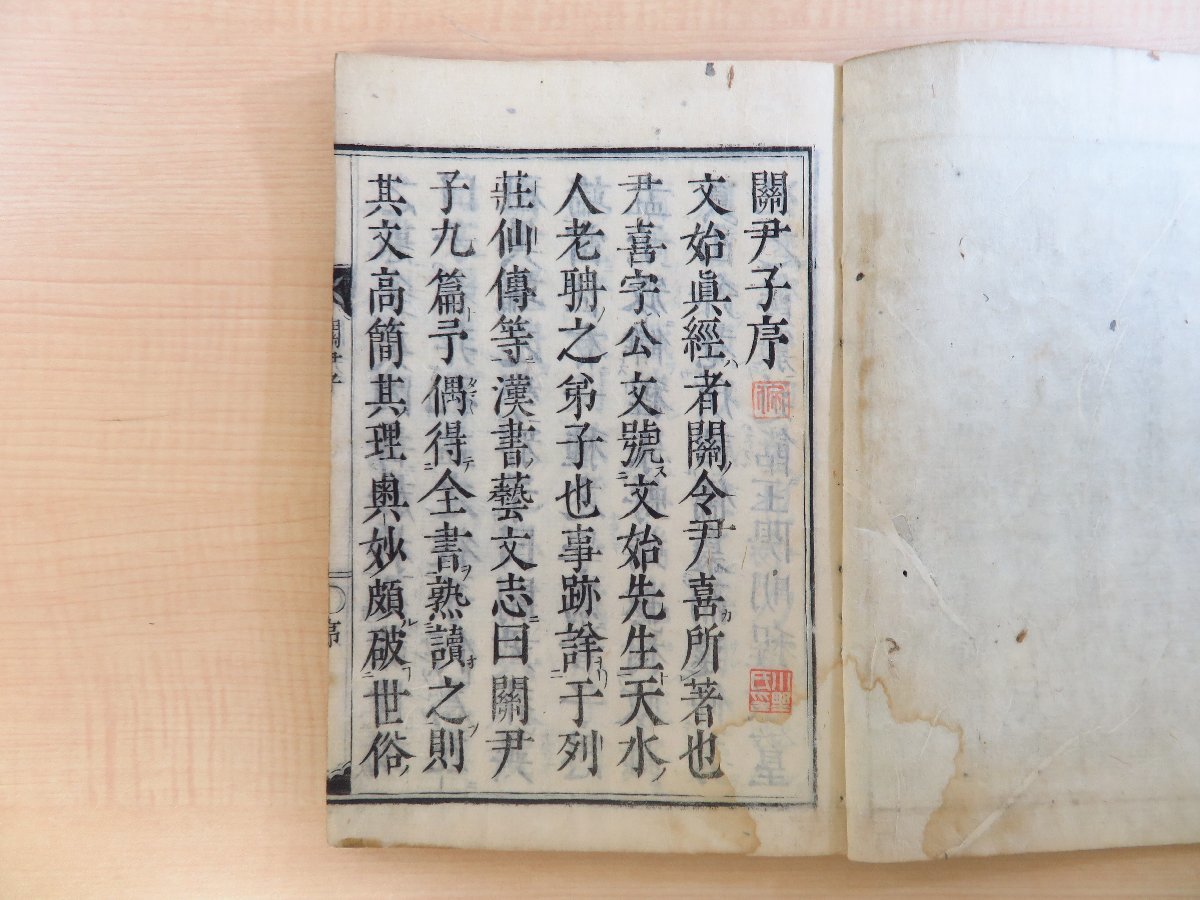 關尹子序
文始眞經者關令尹喜所著也
尹喜字公文號文始先生天水
人老聃之弟子也事跡詳于列
莊仙傳等漢書藝文志曰關尹
子九篇予偶得全書熟讀之則
其文高簡其理奥妙頗破世俗
關尹子
序